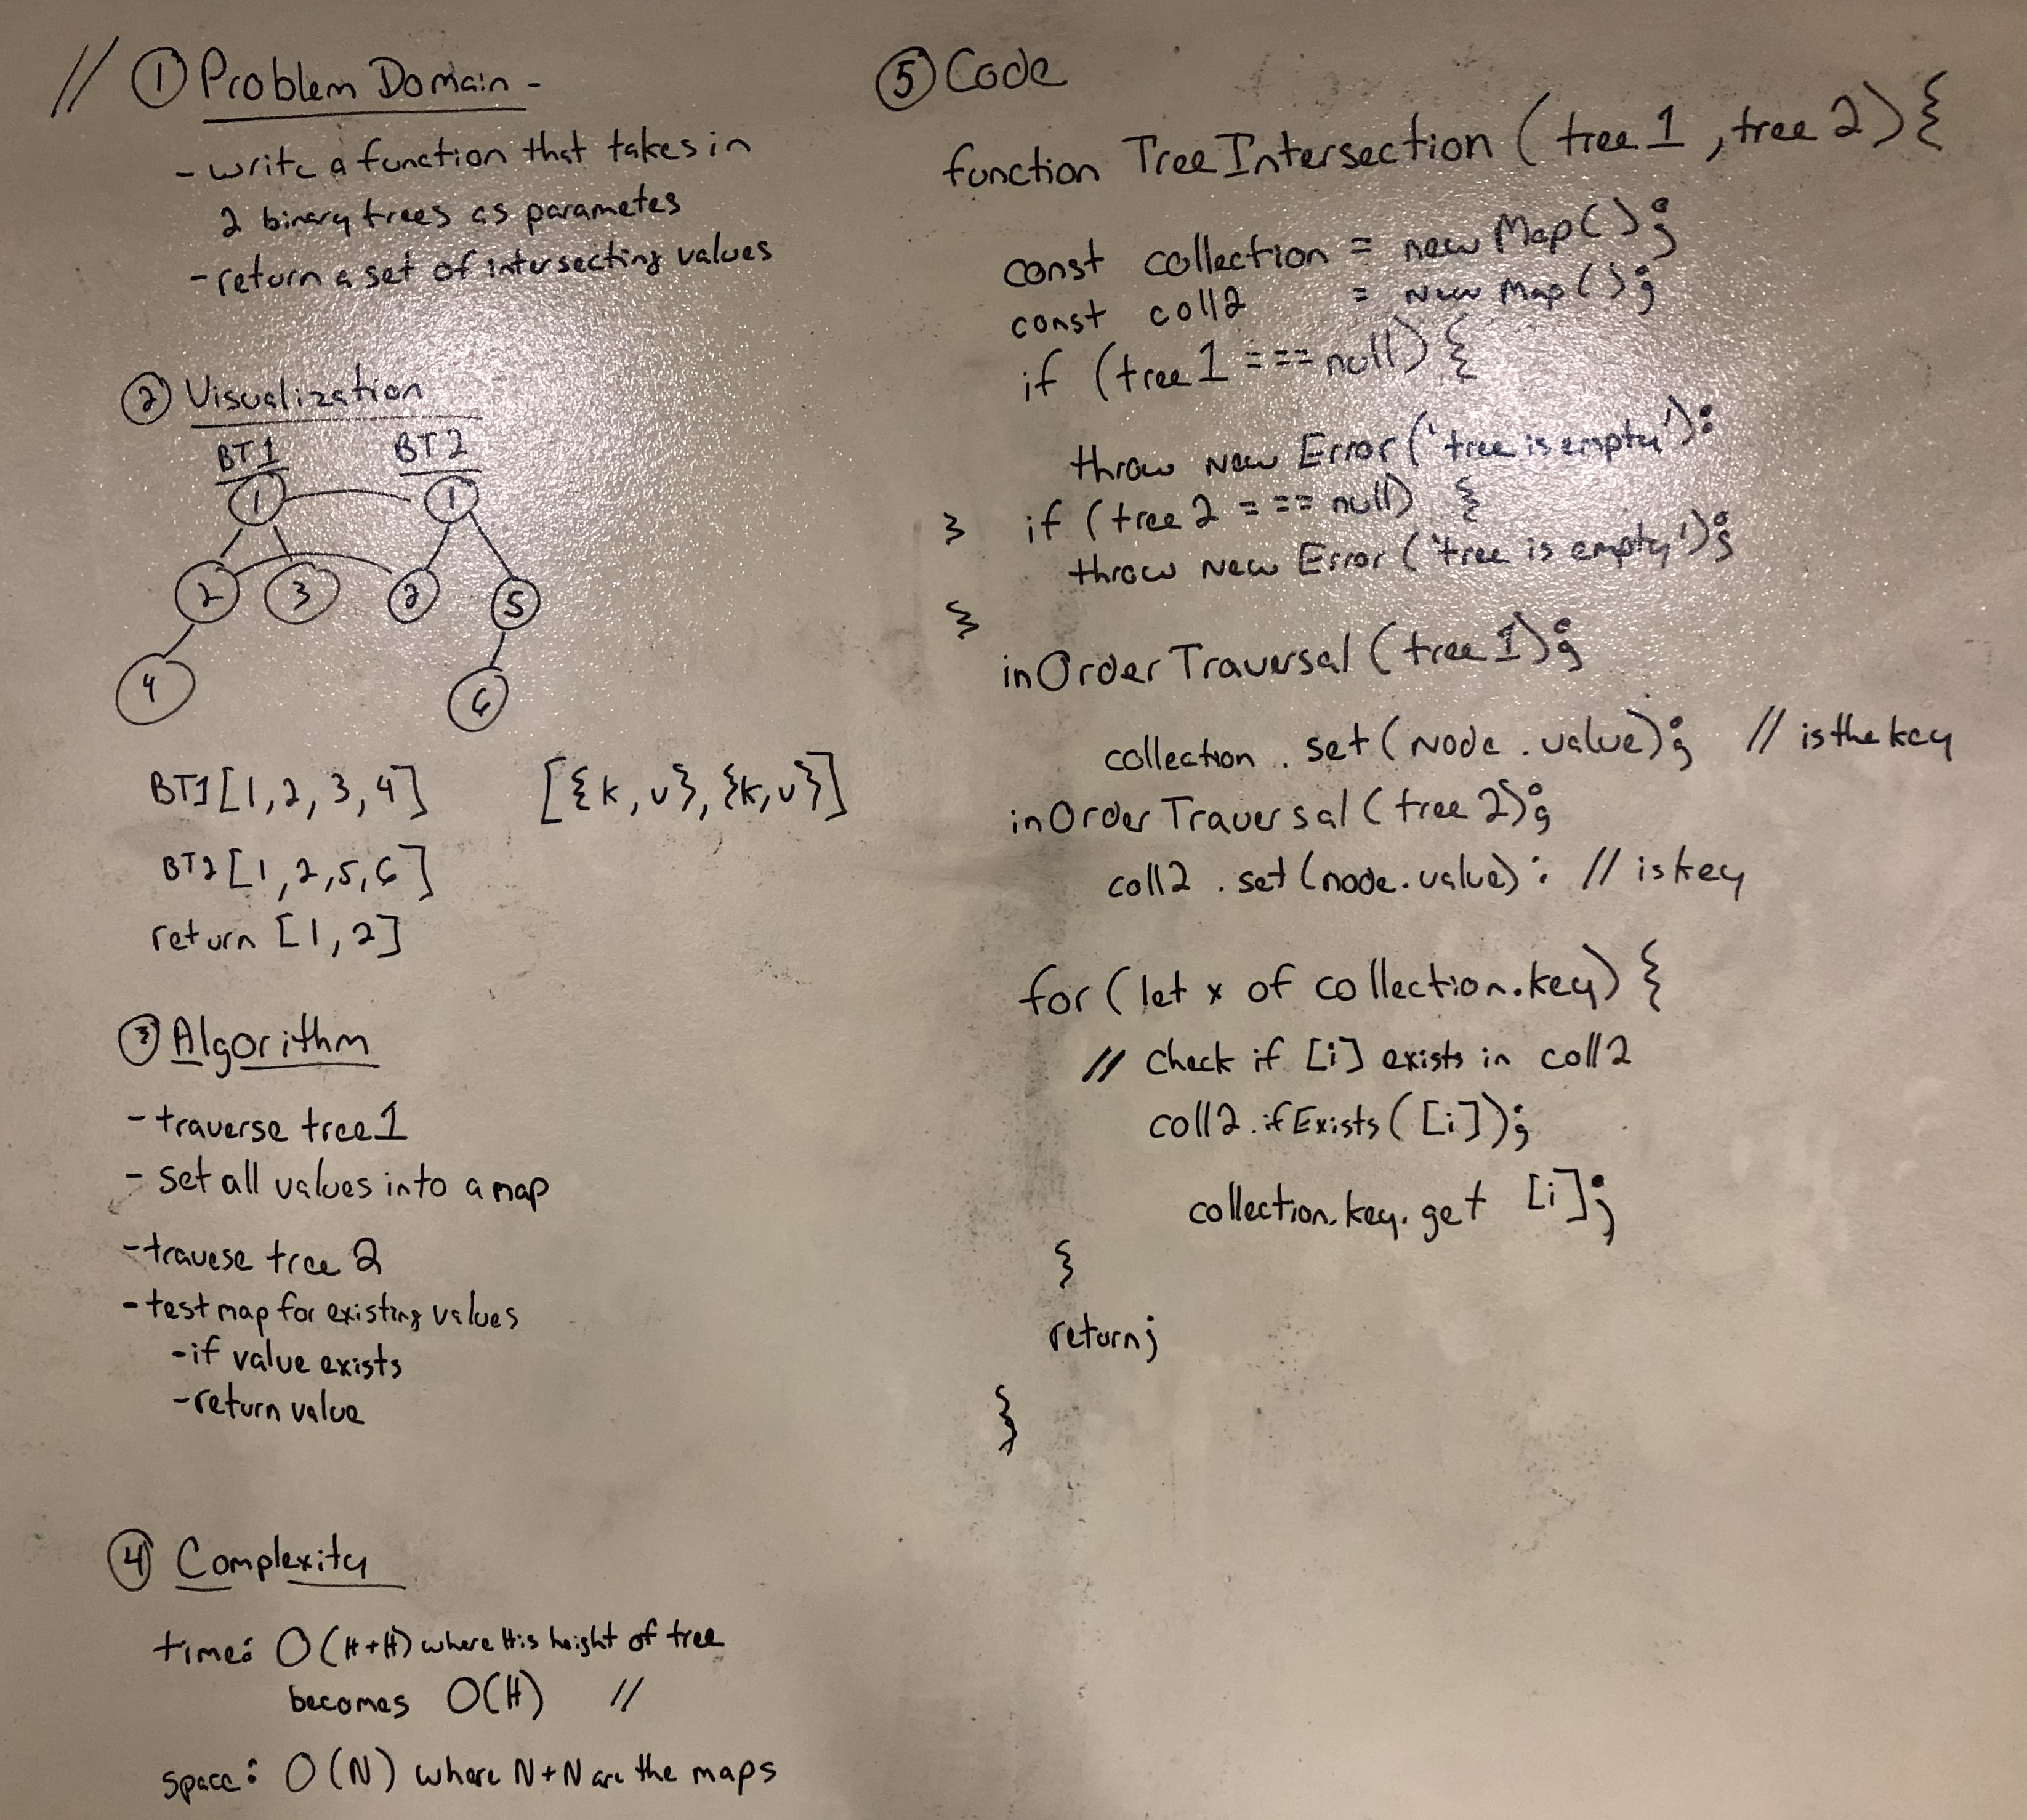 // ① Problem Domain -
- write a function that takes in
2 binary trees as parametes
- return a set of intersecting values
② Visualization
BT1 BT2
1 1
2 3 2 5
4 6
BT1[1,2,3,4] [{k,v},{k,v}]
BT2[1,2,5,6]
return [1,2]
③ Algorithm
- traverse tree 1
- set all values into a map
- travese tree 2
- test map for existing values
- if value exists
- return value
④ Complexity
time: O(H+H) where H is height of tree
becomes O(H) //
space: O(N) where N+N are the maps
⑤ Code
function TreeIntersection (tree 1, tree 2){
const collection = new Map();
const coll2 = new Map();
if (tree 1 === null) {
throw new Error('tree is empty');
} if (tree 2 === null) {
throw new Error('tree is empty');
}
inOrderTraversal (tree 1);
collection.set(node.value); // is the key
inOrderTraversal (tree 2);
coll2.set(node.value); // is key
for (let x of collection.key) {
// check if [i] exists in coll2
coll2.ifExists([i]);
collection.key.get [i];
}
return;
}